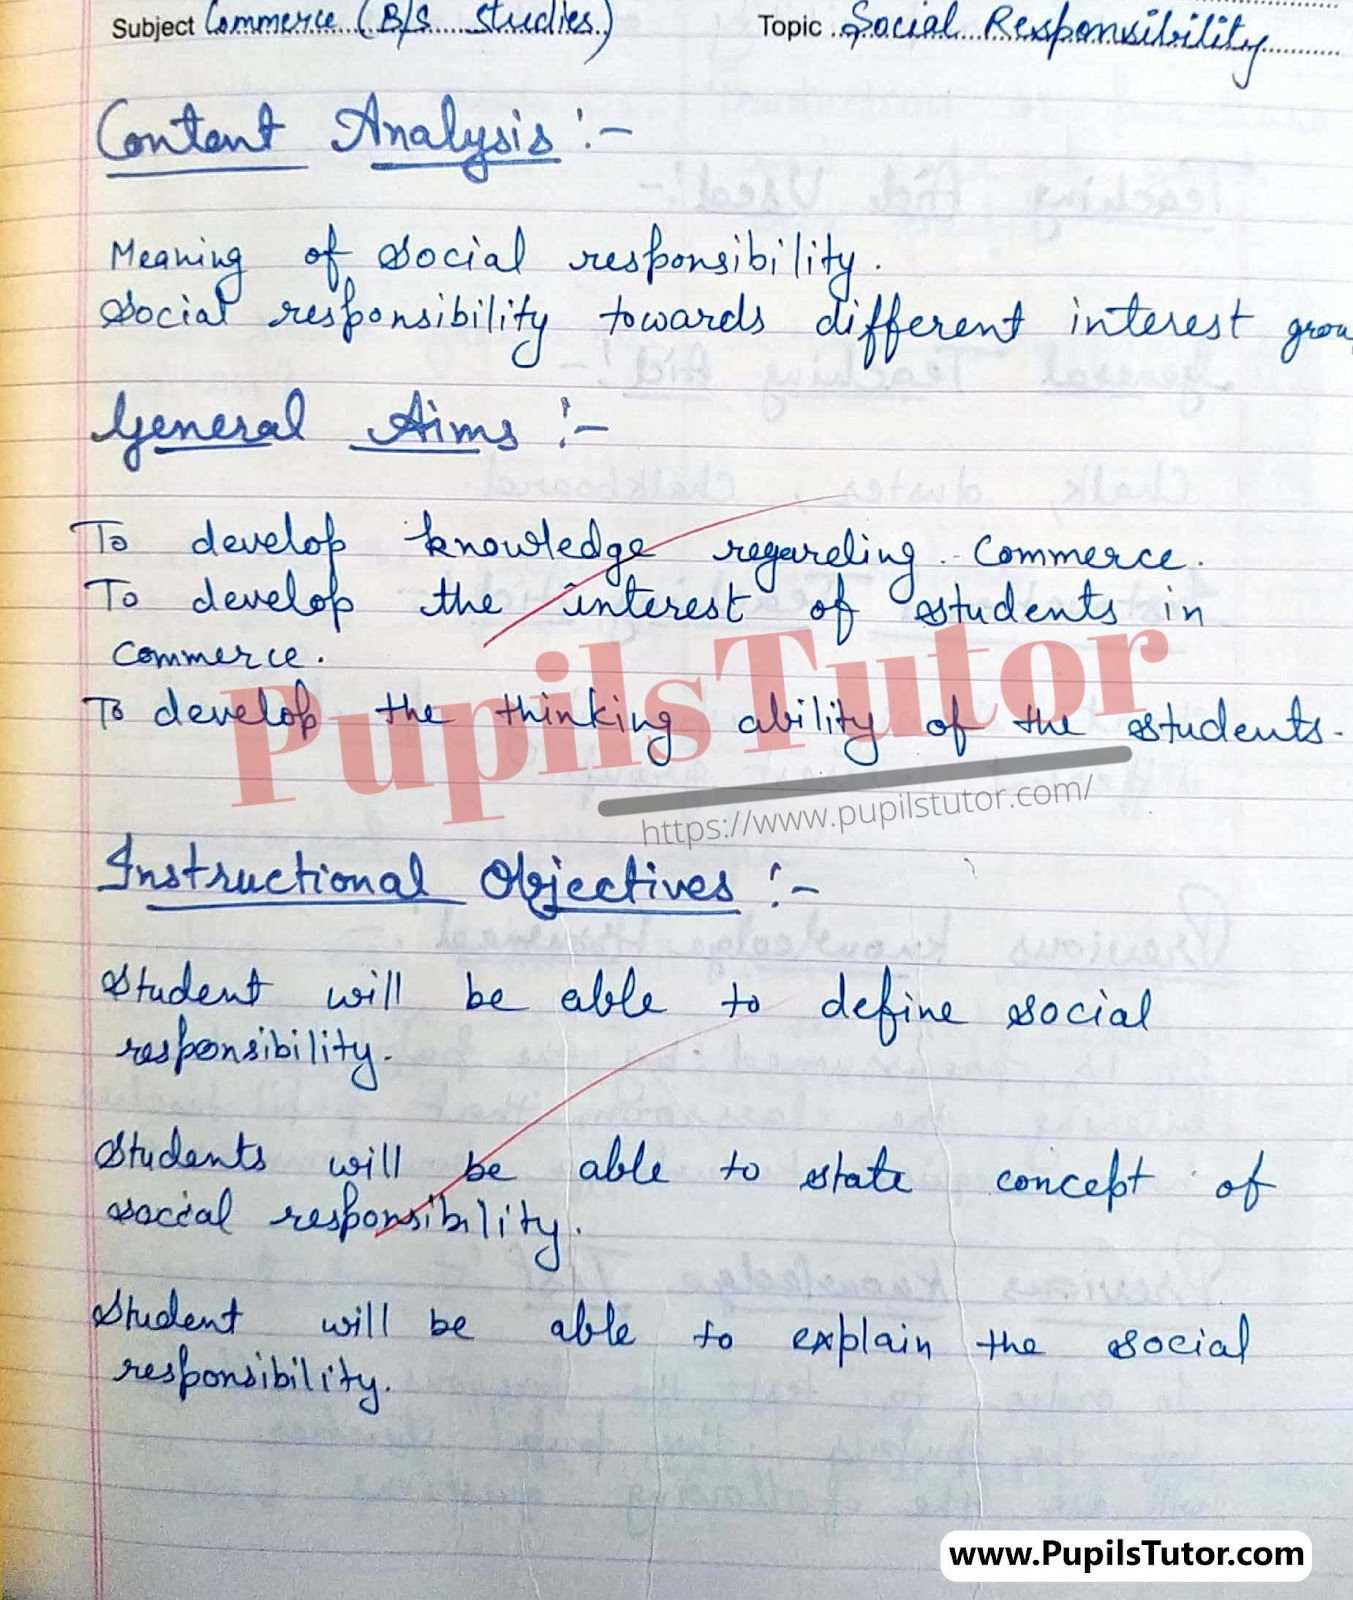 Subject Commerce (B/S Studies) Topic Social Responsibility
Content Analysis :-
Meaning of social responsibility.
Social responsibility towards different interest grou
General Aims :-
To develop knowledge regarding commerce.
To develop the interest of students in
commerce.
To develop the thinking ability of the students.
PupilsTutor
https://www.pupilstutor.com/
Instructional Objectives :-
Student will be able to define social
responsibility.
Students will be able to state concept of
social responsibility.
Student will be able to explain the social
responsibility.
www.PupilsTutor.com